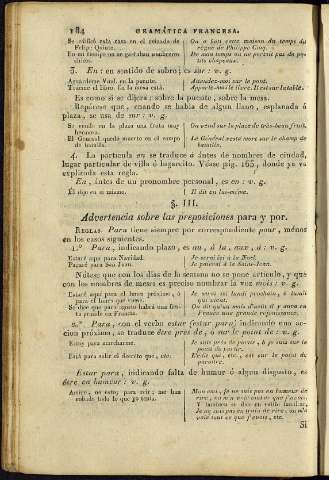 184 GRAMÁTICA FRANCESA.
Se edificó esta casa en el reinado de Felipe Quinto.
On a bati cette maison du temps du règne de Philippe Cinq.
En mi tiempo no se gastaban sombreros chicos.
De mon temps on ne portait pas de petits chapeaux.
3. En: en sentido de sobre; es sur: v. g.
Aguárdeme Vmd. en la puente.
Attendez-moi sur le pont.
Tráeme el libro. En la mesa está.
Apporte-moi le livre. Il est sur la table.
Es como si se dijera: sobre la puente, sobre la mesa.
Requiérese que, cuando se habla de algun llano, esplanada ó
plaza, se usa de sur: v. g.
Se vende en la plaza una fruta muy hermosa.
On vend sur la place de très-beau fruit.
El General quedó muerto en el campo de batalla.
Le Général resta mort sur le champ de bataille.
4. La partícula en se traduce à antes de nombres de ciudad,
lugar particular de villa ó lugarcito. Véase pág. 165, donde ya va
explicada esta regla.
En, antes de un pronombre personal, es en: v. g.
Él dijo en sí mismo.
Il dit en lui-même.
§. III.
Advertencia sobre las preposiciones para y por.
REGLAS. Para tiene siempre por correspondiente pour, ménos
en los casos siguientes.
1.° Para, indicando plazo, es au, à la, aux, à: v. g.
Estaré aquí para Navidad.
Je serai ici à la Noel.
Pagaré para San Juan.
Je paierai à la Saint-Jean.
Nótese que con los dias de la semana no se pone artículo, y que
con los nombres de meses es preciso nombrar la voz mois: v. g.
Estaré aquí para el lunes próximo, ó para el lunes que viene.
Je serai ici lundi prochain, ó lundi qui vient.
Se dice que para agosto habrá una fruta grande en Francia.
On dit qu'au mois d'août il y aura en France une grande
2.° Para, con el verbo estar (estar para) indicando una accion
próxima, se traduce être près de, ó sur le point de: v. g.
Estoy para marcharme.
Je suis près de partir, ó je suis sur le point de partir.
Está para salir el decreto que, etc.
L'édit qui, etc., est sur le point de paraître.
Estar para, indicando falta de humor ó algun disgusto, es
être en humeur: v. g.
Amigo, no estoy para reir; me han robado todo lo que yo tenia.
Mon ami, je ne suis pas en humeur de rire, on m'a volé tout ce que j'avais.
Y tambien se dice en estilo familiar, Je ne suis pas en train de rire, on m'a volé tout ce que j'avais, etc.
Si